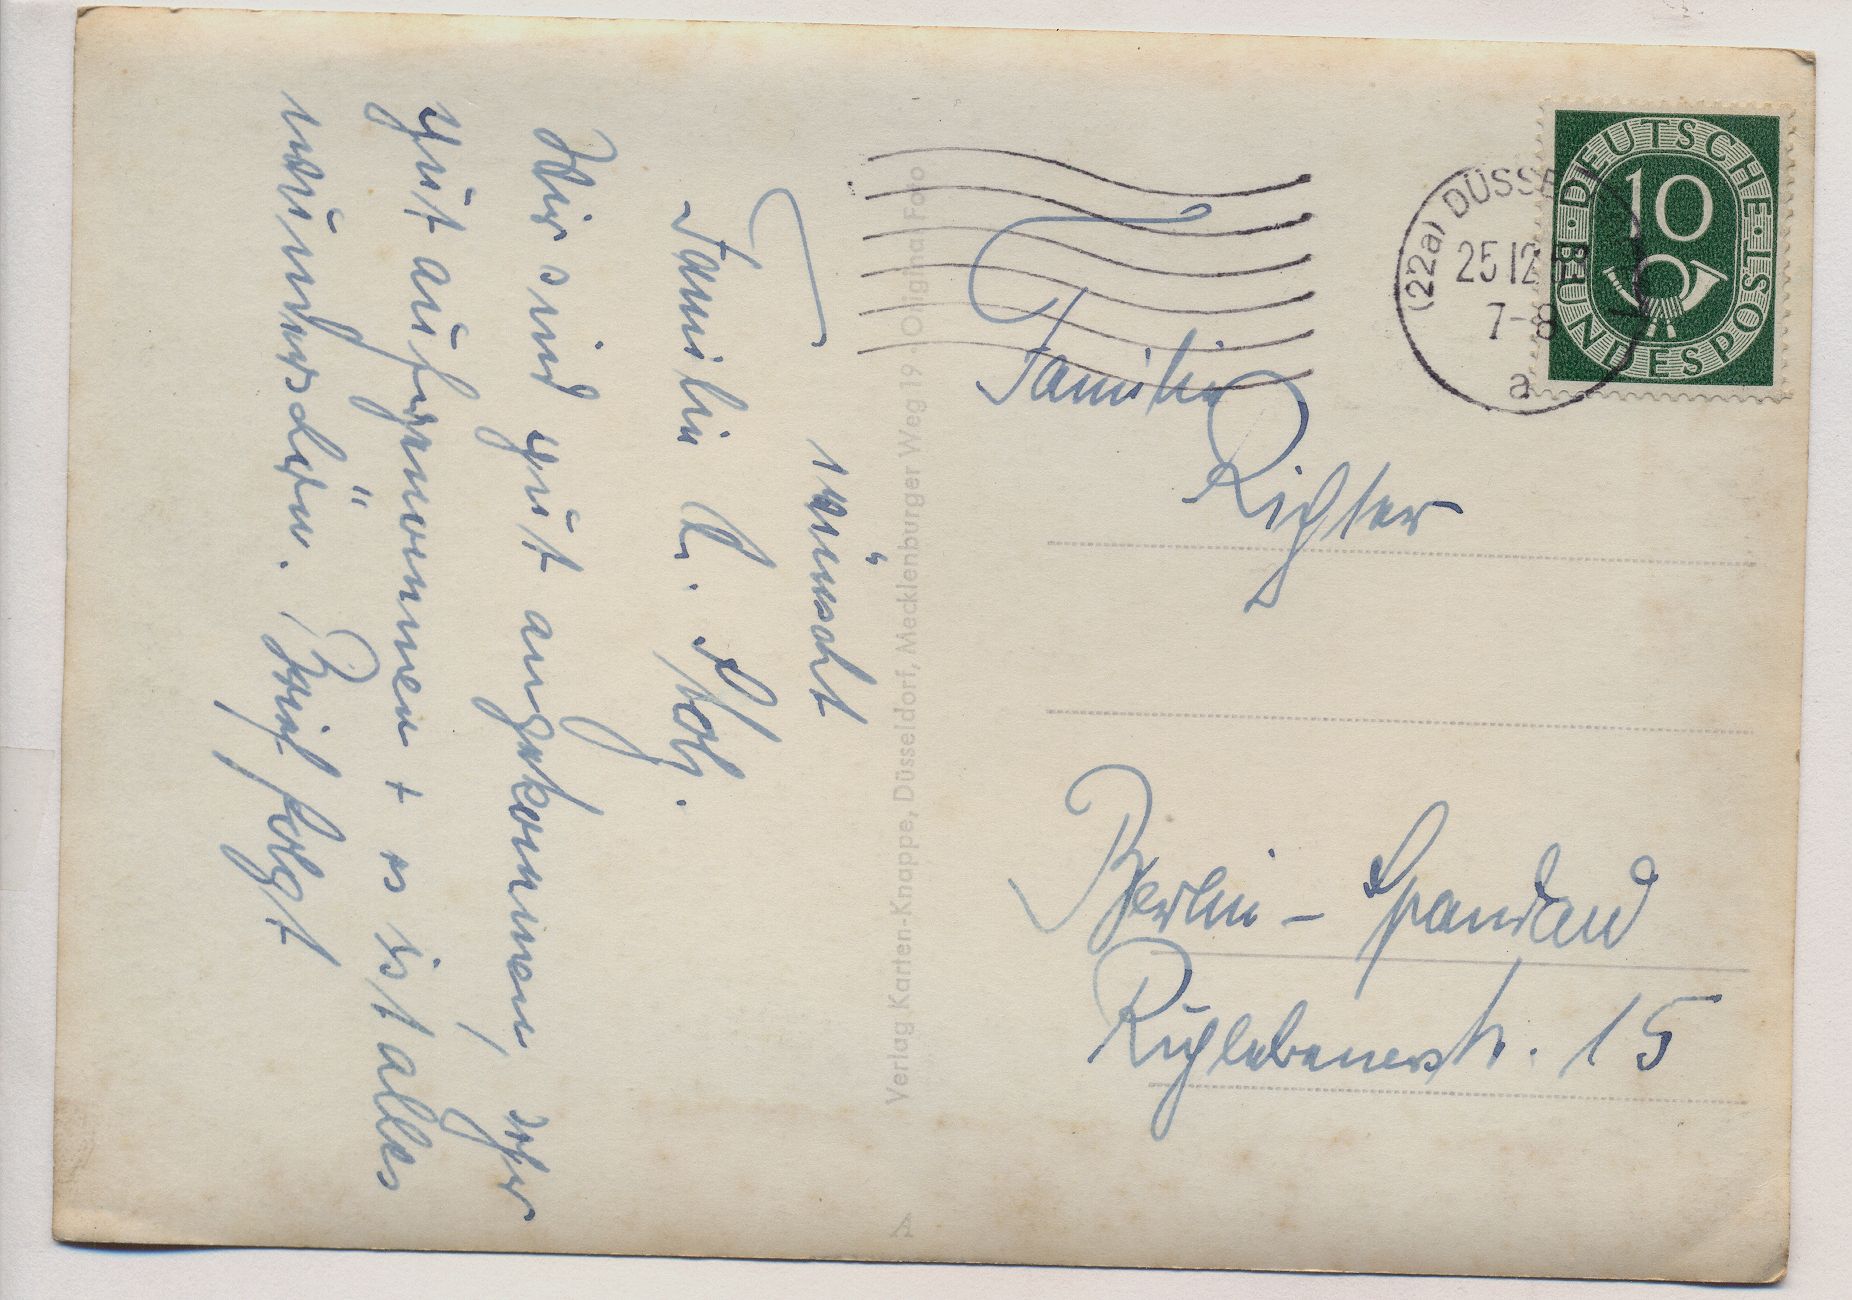 wünscht
Familie
Wir sind gut angekommen, sehr
gut aufgenommen + es ist alles
wunderschön. Brief folgt
Verlag Karten-Knappe, Düsseldorf, Mecklenburger Weg 19 · Original Foto
A
DEUTSCHE BUNDESPOST
10
(22a) DÜSSE
25 12
7-8
a
Familie
Richter
Berlin - Spandau
Ruhlebenerstr. 15